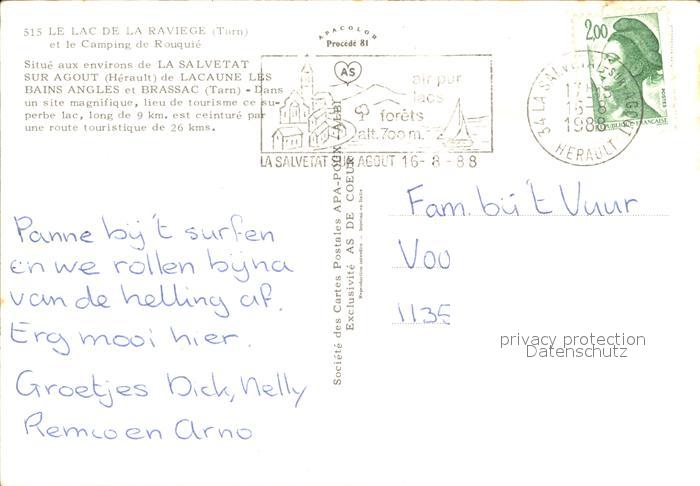 515 LE LAC DE LA RAVIEGE (Tarn)
et le Camping de Rouquié
Situé aux environs de LA SALVETAT
SUR AGOUT (Hérault) de LACAUNE LES
BAINS ANGLES et BRASSAC (Tarn) - Dans
un site magnifique, lieu de tourisme ce su-
perbe lac, long de 9 km. est ceinturé par
une route touristique de 26 kms.
APACOLOR
Procédé 81
AS
air pur
lacs
forêts
alt. 700 m.
LA SALVETAT SUR AGOUT 16-8-88
2,00
POSTES
FRANÇAISE
34 LA SALVETAT SUR AGOUT
17 H
16-8
1988
HERAULT
Société des Cartes Postales APA-POUX - ALBI
Exclusivité AS DE COEUR
Panne bij 't surfen
en we rollen bijna
van de helling af.
Erg mooi hier.
Groetjes Dick, Nelly
Remco en Arno
Fam. bij 't Vuur
Voo
1135
privacy protection
Datenschutz